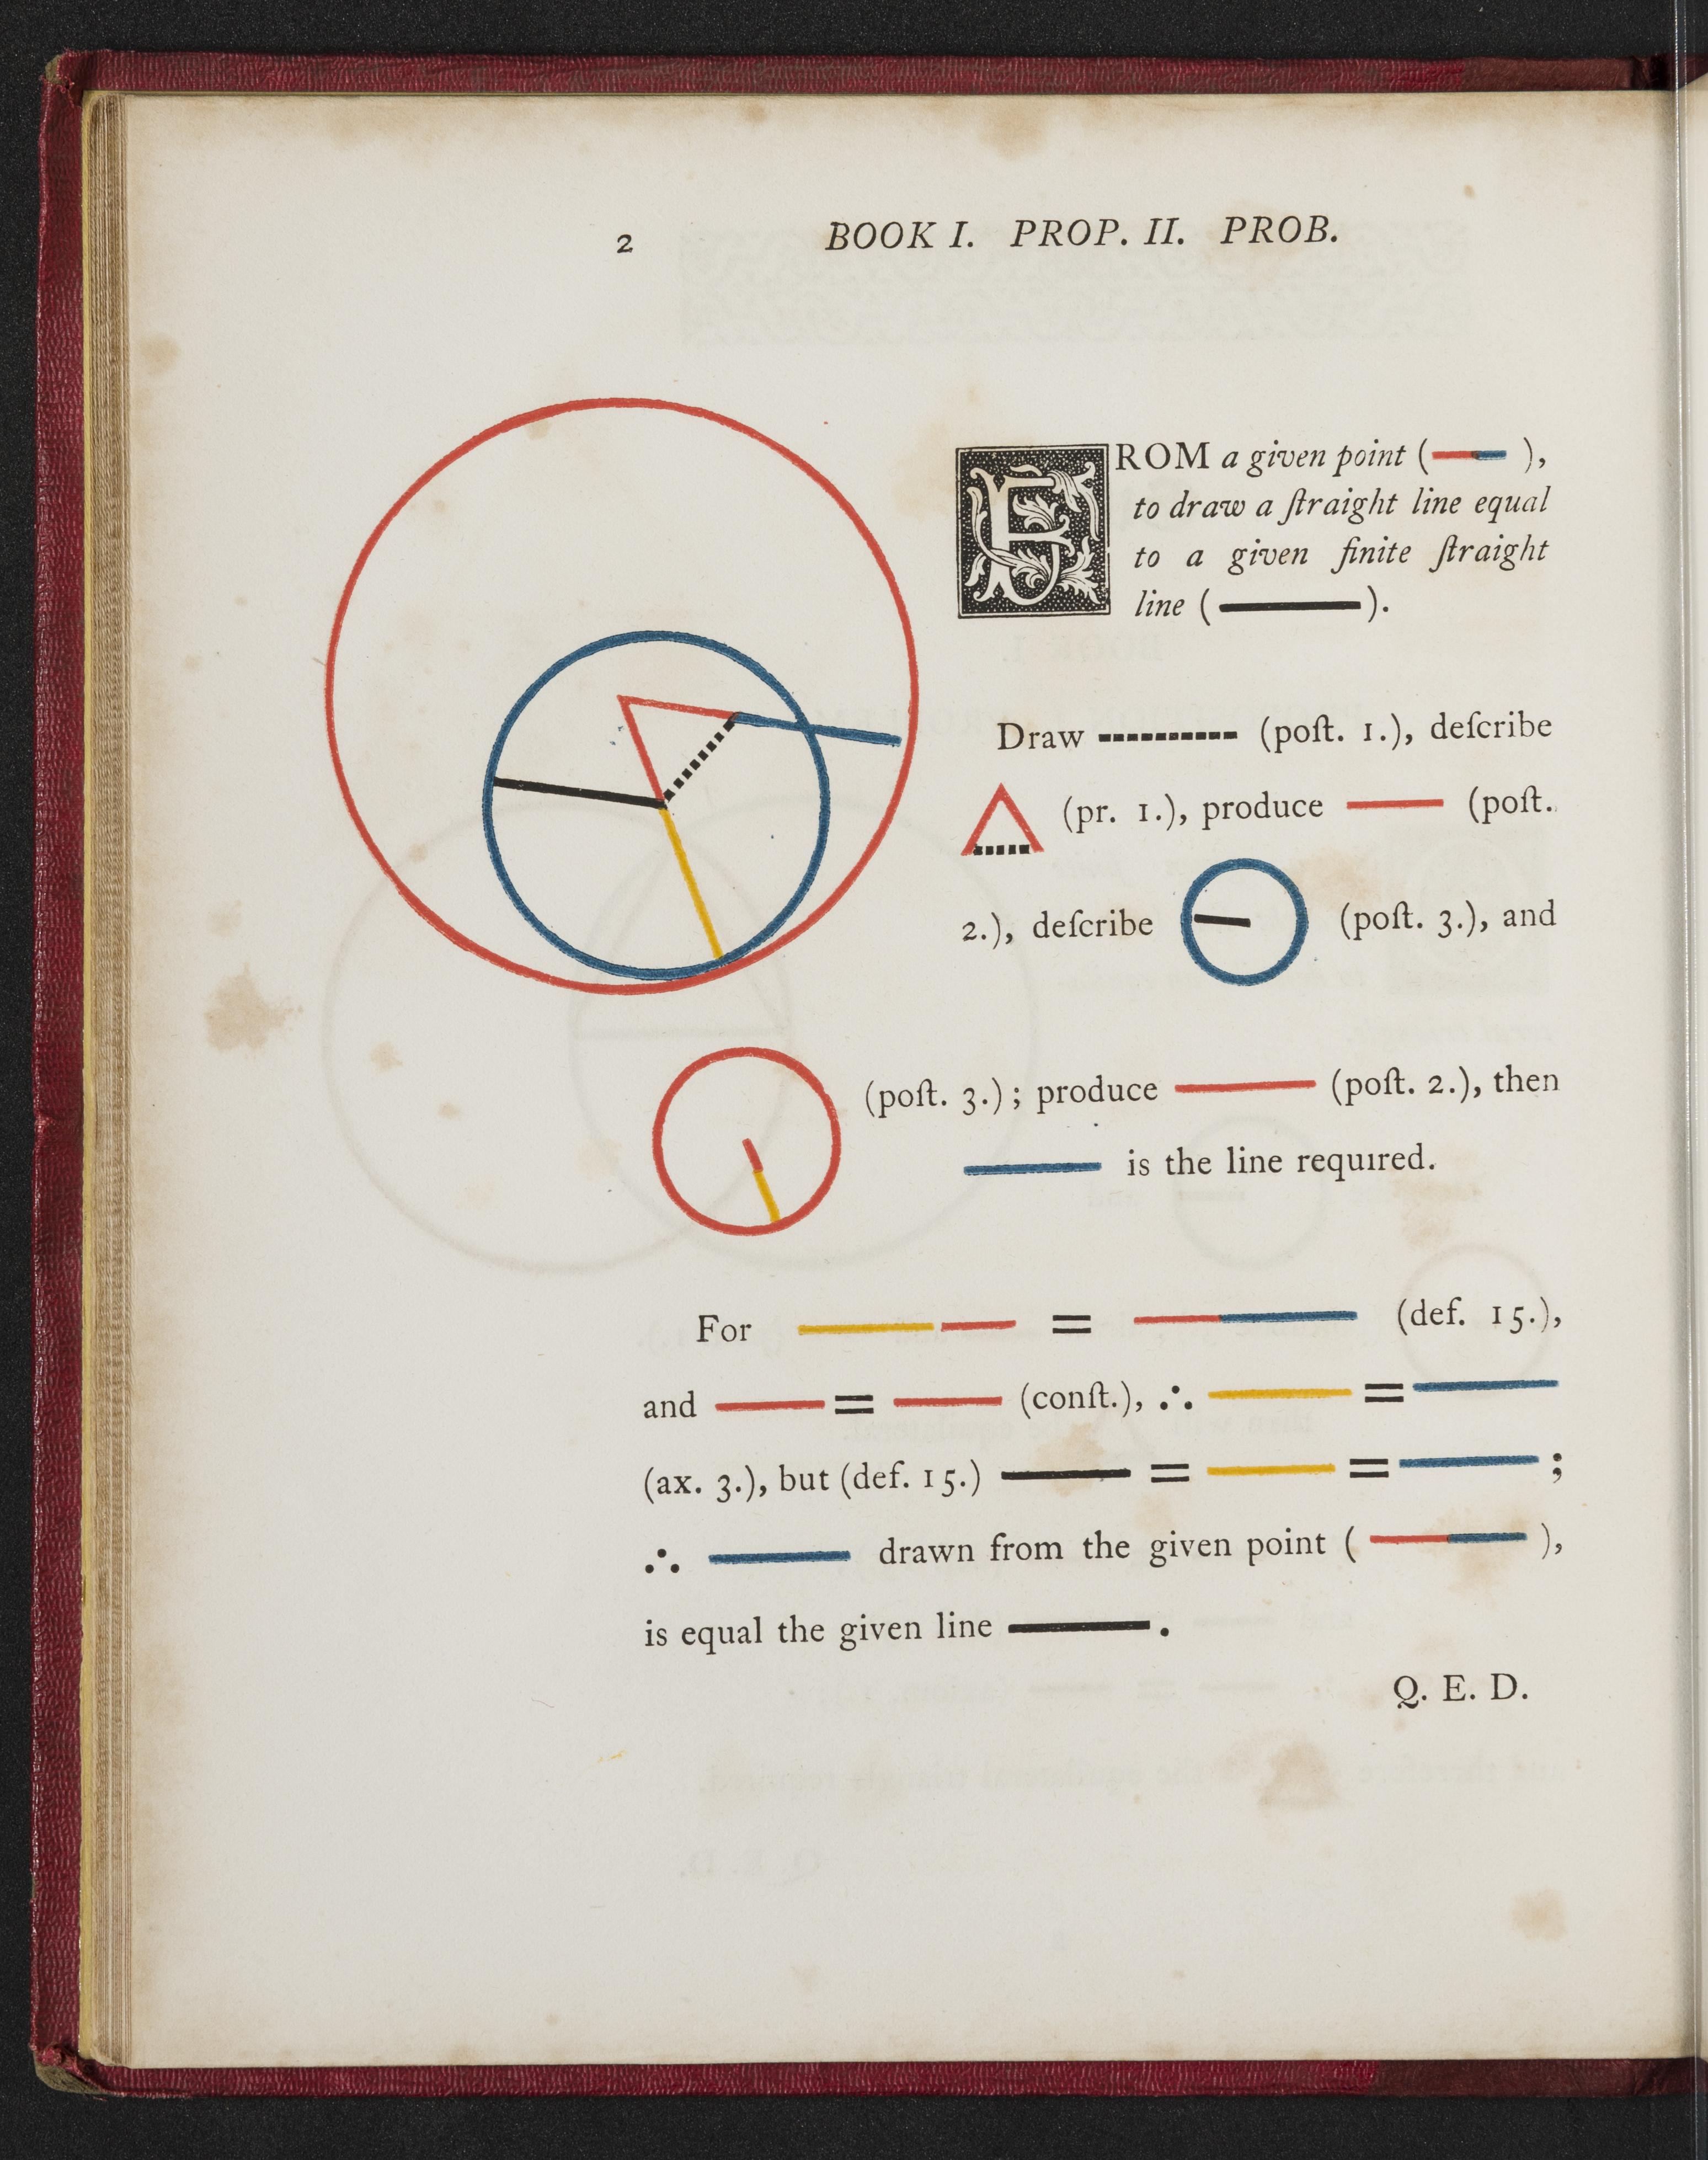 2 BOOK I. PROP. II. PROB.
FROM a given point ( ),
to draw a ſtraight line equal
to a given finite ſtraight
line ( ).
Draw (poſt. 1.), deſcribe
(pr. 1.), produce (poſt.
2.), deſcribe (poſt. 3.), and
(poſt. 3.) ; produce (poſt. 2.), then
is the line required.
For = (def. 15.),
and = (conſt.), ∴ =
(ax. 3.), but (def. 15.) = = ;
∴ drawn from the given point ( ),
is equal the given line .
Q. E. D.